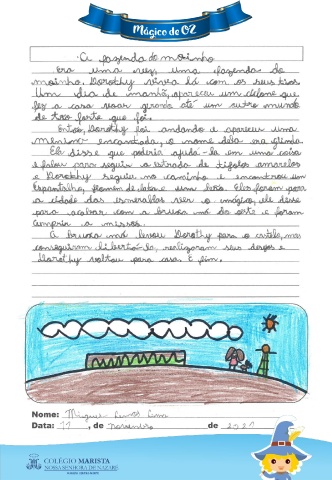 Mágico de OZ
A fazenda do moinho
Era uma vez, uma fazenda de
moinho. Dorothy vivia lá com os seus tios.
Um dia de manhã, apareceu um ciclone que
fez a casa voar girando até um outro mundo
de tão forte que foi.
Então, Dorothy foi andando e apareceu uma
menina encantada, o nome dela era Glinda.
Ela disse que poderia ajudá-la em uma coisa
e falou para seguir a estrada de tijolos amarelos
e Dorothy seguiu no caminho e encontrou um
Espantalho, Homem de lata e um leão. Eles foram para
a cidade das esmeraldas ver o mágico, ele disse
para acabar com a bruxa má do oeste e foram
cumprir a missão.
A bruxa má levou Dorothy para o castelo, mas
conseguiram libertá-la, realizaram seus desejos e
Dorothy voltou para casa. E fim.
Nome: Miguel Lima
Data: 11, de novembro de 2021
COLÉGIO MARISTA
NOSSA SENHORA DE NAZARÉ